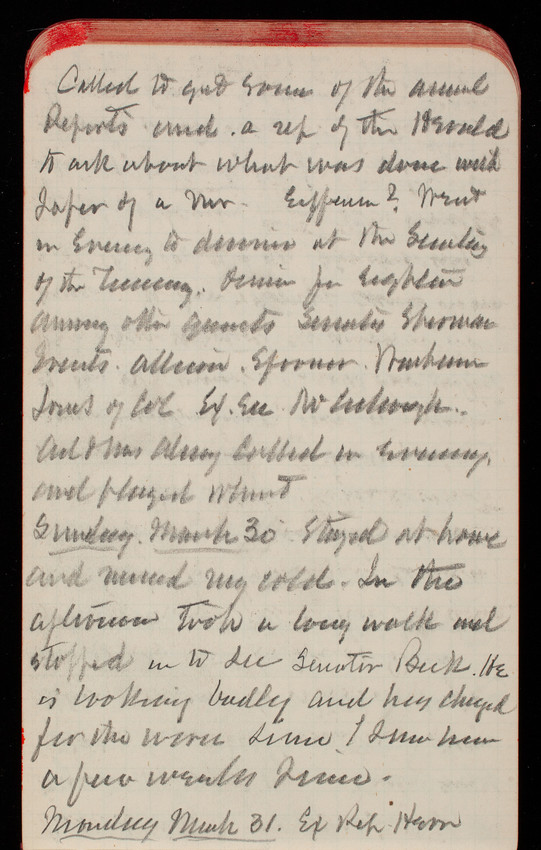 Called to get some of the annual
Reports and a rep of the Herald
to ask about what was done with
of a Mr. Went
in Evening to dinner at the Secretary
of the Treasury. Dinner for Eighteen
Among other guests Senators Sherman
Allison. Spooner.
Jones of Col Ex. Sec McCullough.
Col & Mrs called in Evening,
and played Whist
Sunday. March 30 Stayed at home
and nursed my cold. In the
afternoon took a long walk and
stopped in to see Senator Beck. He
is looking badly and has changed
for the worse since I saw him
a few weeks since.
Monday March 31. Ex Rep